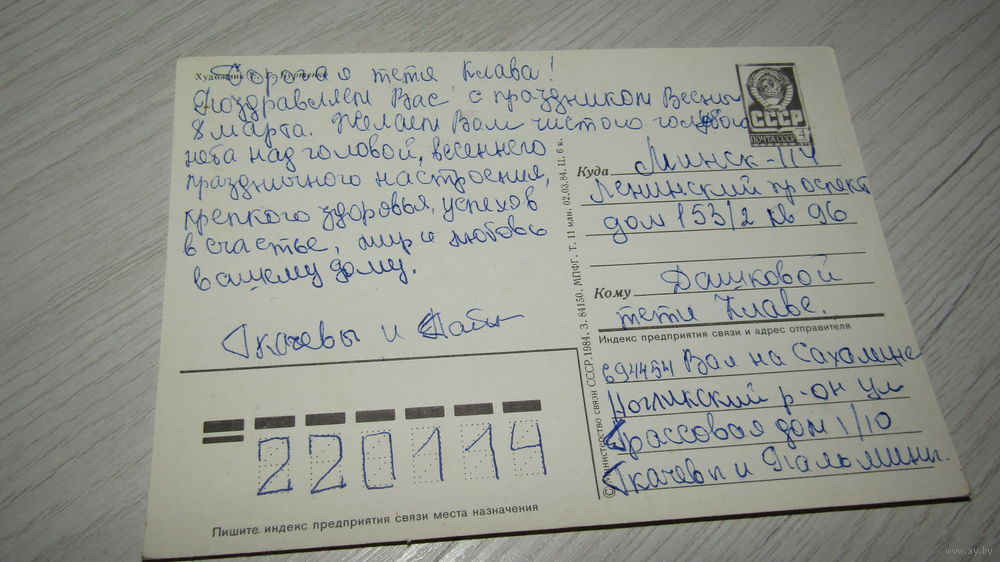 Дорогая тетя Клава!
Поздравляем Вас с праздником Весны
8 марта. Желаем Вам чистого голубого
неба над головой, весеннего
праздничного настроения,
крепкого здоровья, успехов
в счастье, мир и любовь
вашему дому.
Ткачевы и
Художник
СССР
ПОЧТА СССР 4
Куда Минск-114
Ленинский проспект
дом 153/2 кв 96
Кому Дашковой
тете Клаве.
Индекс предприятия связи и адрес отправителя
694454 Вал на Сахалине
Ногликский р-он ул
Трассовая дом 1/10
Ткачевы и
220114
Пишите индекс предприятия связи места назначения
© Министерство связи СССР, 1984. З. 84150. МПФГ. Т. 11 млн. 02.03.84. Ц. 6 к.
www.ay.by